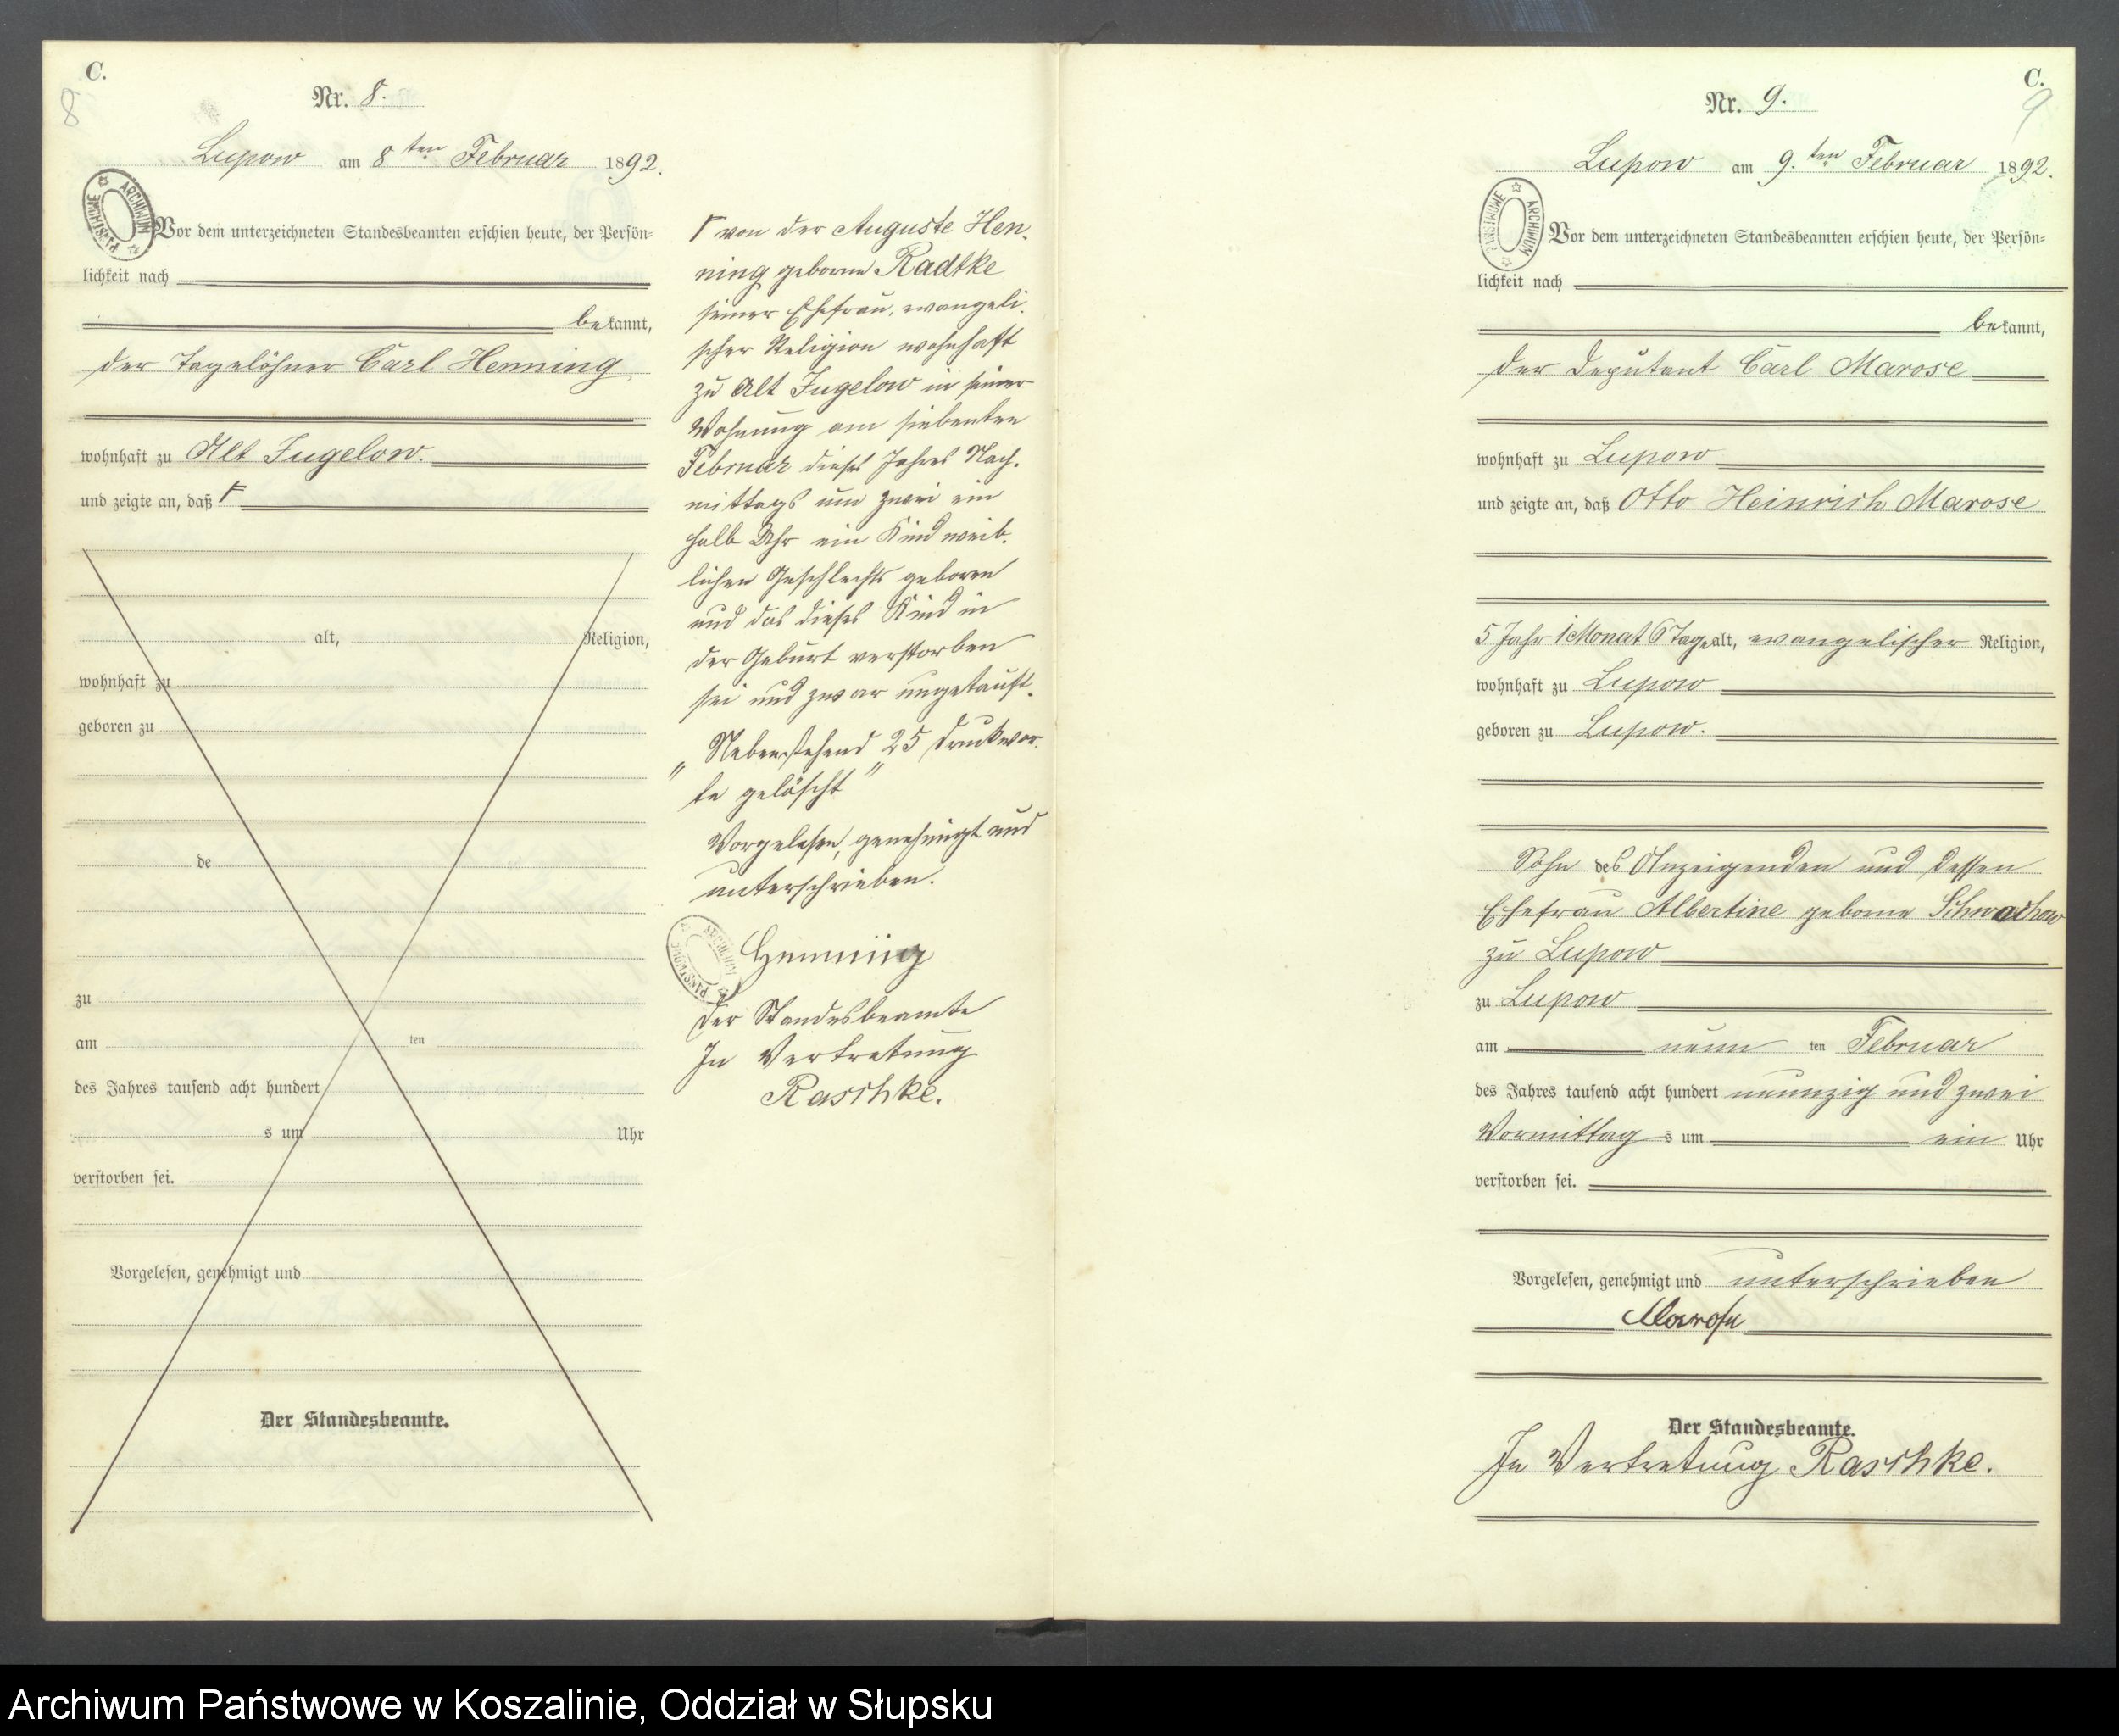 C.
8
Nr. 8.
Lupow am 8ten Februar 1892.
Vor dem unterzeichneten Standesbeamten erschien heute, der Persön=
lichkeit nach
bekannt,
der Tagelöhner Carl Henning
wohnhaft zu Alt Jugelow.
und zeigte an, daß Γ
alt, Religion,
wohnhaft zu
geboren zu
de
zu
am ten
des Jahres tausend acht hundert
s um Uhr
verstorben sei.
Vorgelesen, genehmigt und
Der Standesbeamte.
Γ von der Auguste Hen-
ning geborne Radtke
seiner Ehefrau, evangeli-
scher Religion wohnhaft
zu Alt Jugelow in seiner
Wohnung am siebenten
Februar dieses Jahres Nach-
mittags um zwei ein
halb Uhr ein Kind weib-
lichen Geschlechts geboren
und das dieses Kind in
der Geburt verstorben
sei und zwar ungetauft.
„Nebenstehend 25 Druckwor-
te gelöscht"
Vorgelesen, genehmigt und
unterschrieben.
Henning
Der Standesbeamte
In Vertretung
Raschke.
ARCHIWUM PAŃSTWOWE
C.
9
Nr. 9.
Lupow am 9.ten Februar 1892.
Vor dem unterzeichneten Standesbeamten erschien heute, der Persön=
lichkeit nach
bekannt,
der Deputant Carl Marose
wohnhaft zu Lupow
und zeigte an, daß Otto Heinrich Marose
5 Jahr 1 Monat 6 Tage alt, evangelischer Religion,
wohnhaft zu Lupow
geboren zu Lupow.
Sohn des Anzeigenden und dessen
Ehefrau Albertine geborne Schwachow
zu Lupow
zu Lupow
am neun ten Februar
des Jahres tausend acht hundert neunzig und zwei
Vormittag s um ein Uhr
verstorben sei.
Vorgelesen, genehmigt und unterschrieben
Marose
Der Standesbeamte.
In Vertretung Raschke.
Archiwum Państwowe w Koszalinie, Oddział w Słupsku